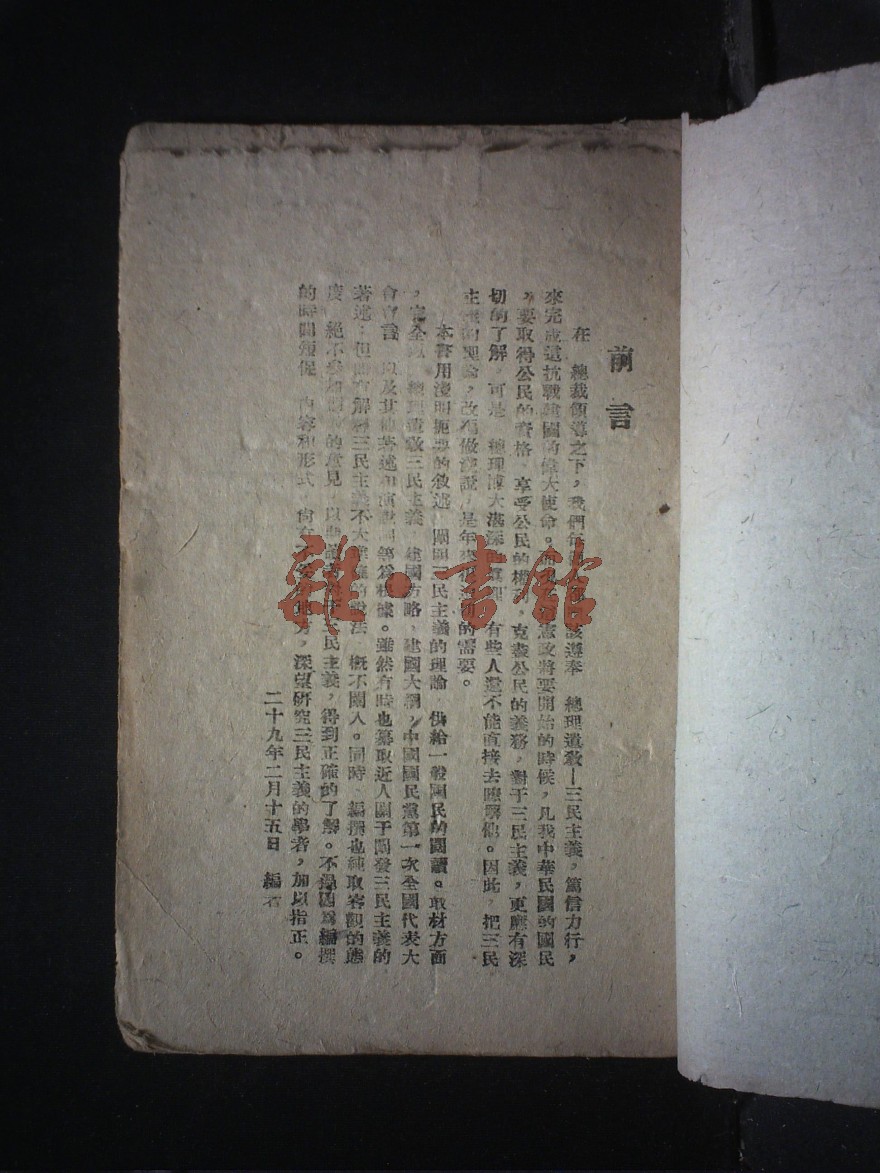 前言
在 總裁領導之下，我們每 該遵奉 總理遺敎—三民主義，篤信力行，
來完成這抗戰建國的偉大使命。 憲政將要開始的時候，凡我中華民國的國民
，要取得公民的資格，享受公民的權 ，克盡公民的義務，對于三民主義，更應有深
切的了解。可是 總理博大 深 眞理 有些人還不能直接去瞭解他。因此，把三民
主義的理論，改 做 說，是年來 切的需要。
本書用淺明扼要的敘述 闡明三民主義的理論 供給一般國民的閱讀。取材方面
，完全以 總理遺敎三民主義，建國方略，建國大綱，中國國民黨第一次全國代表大
會宣言 以及其他著述和演 等爲根據。雖然有時也纂取近人關于闡發三民主義的
著述，但 解釋三民主義不大 的說法 概不闌入。同時，編撰也純取客觀的態
度 絕不參加 的意見，以 民主義，得到正確的了解。不過因爲編撰
的時間短促 內容和形式 尙 地方，深望硏究三民主義的學者，加以指正。
二十九年二月十五日 編者
雜·書館